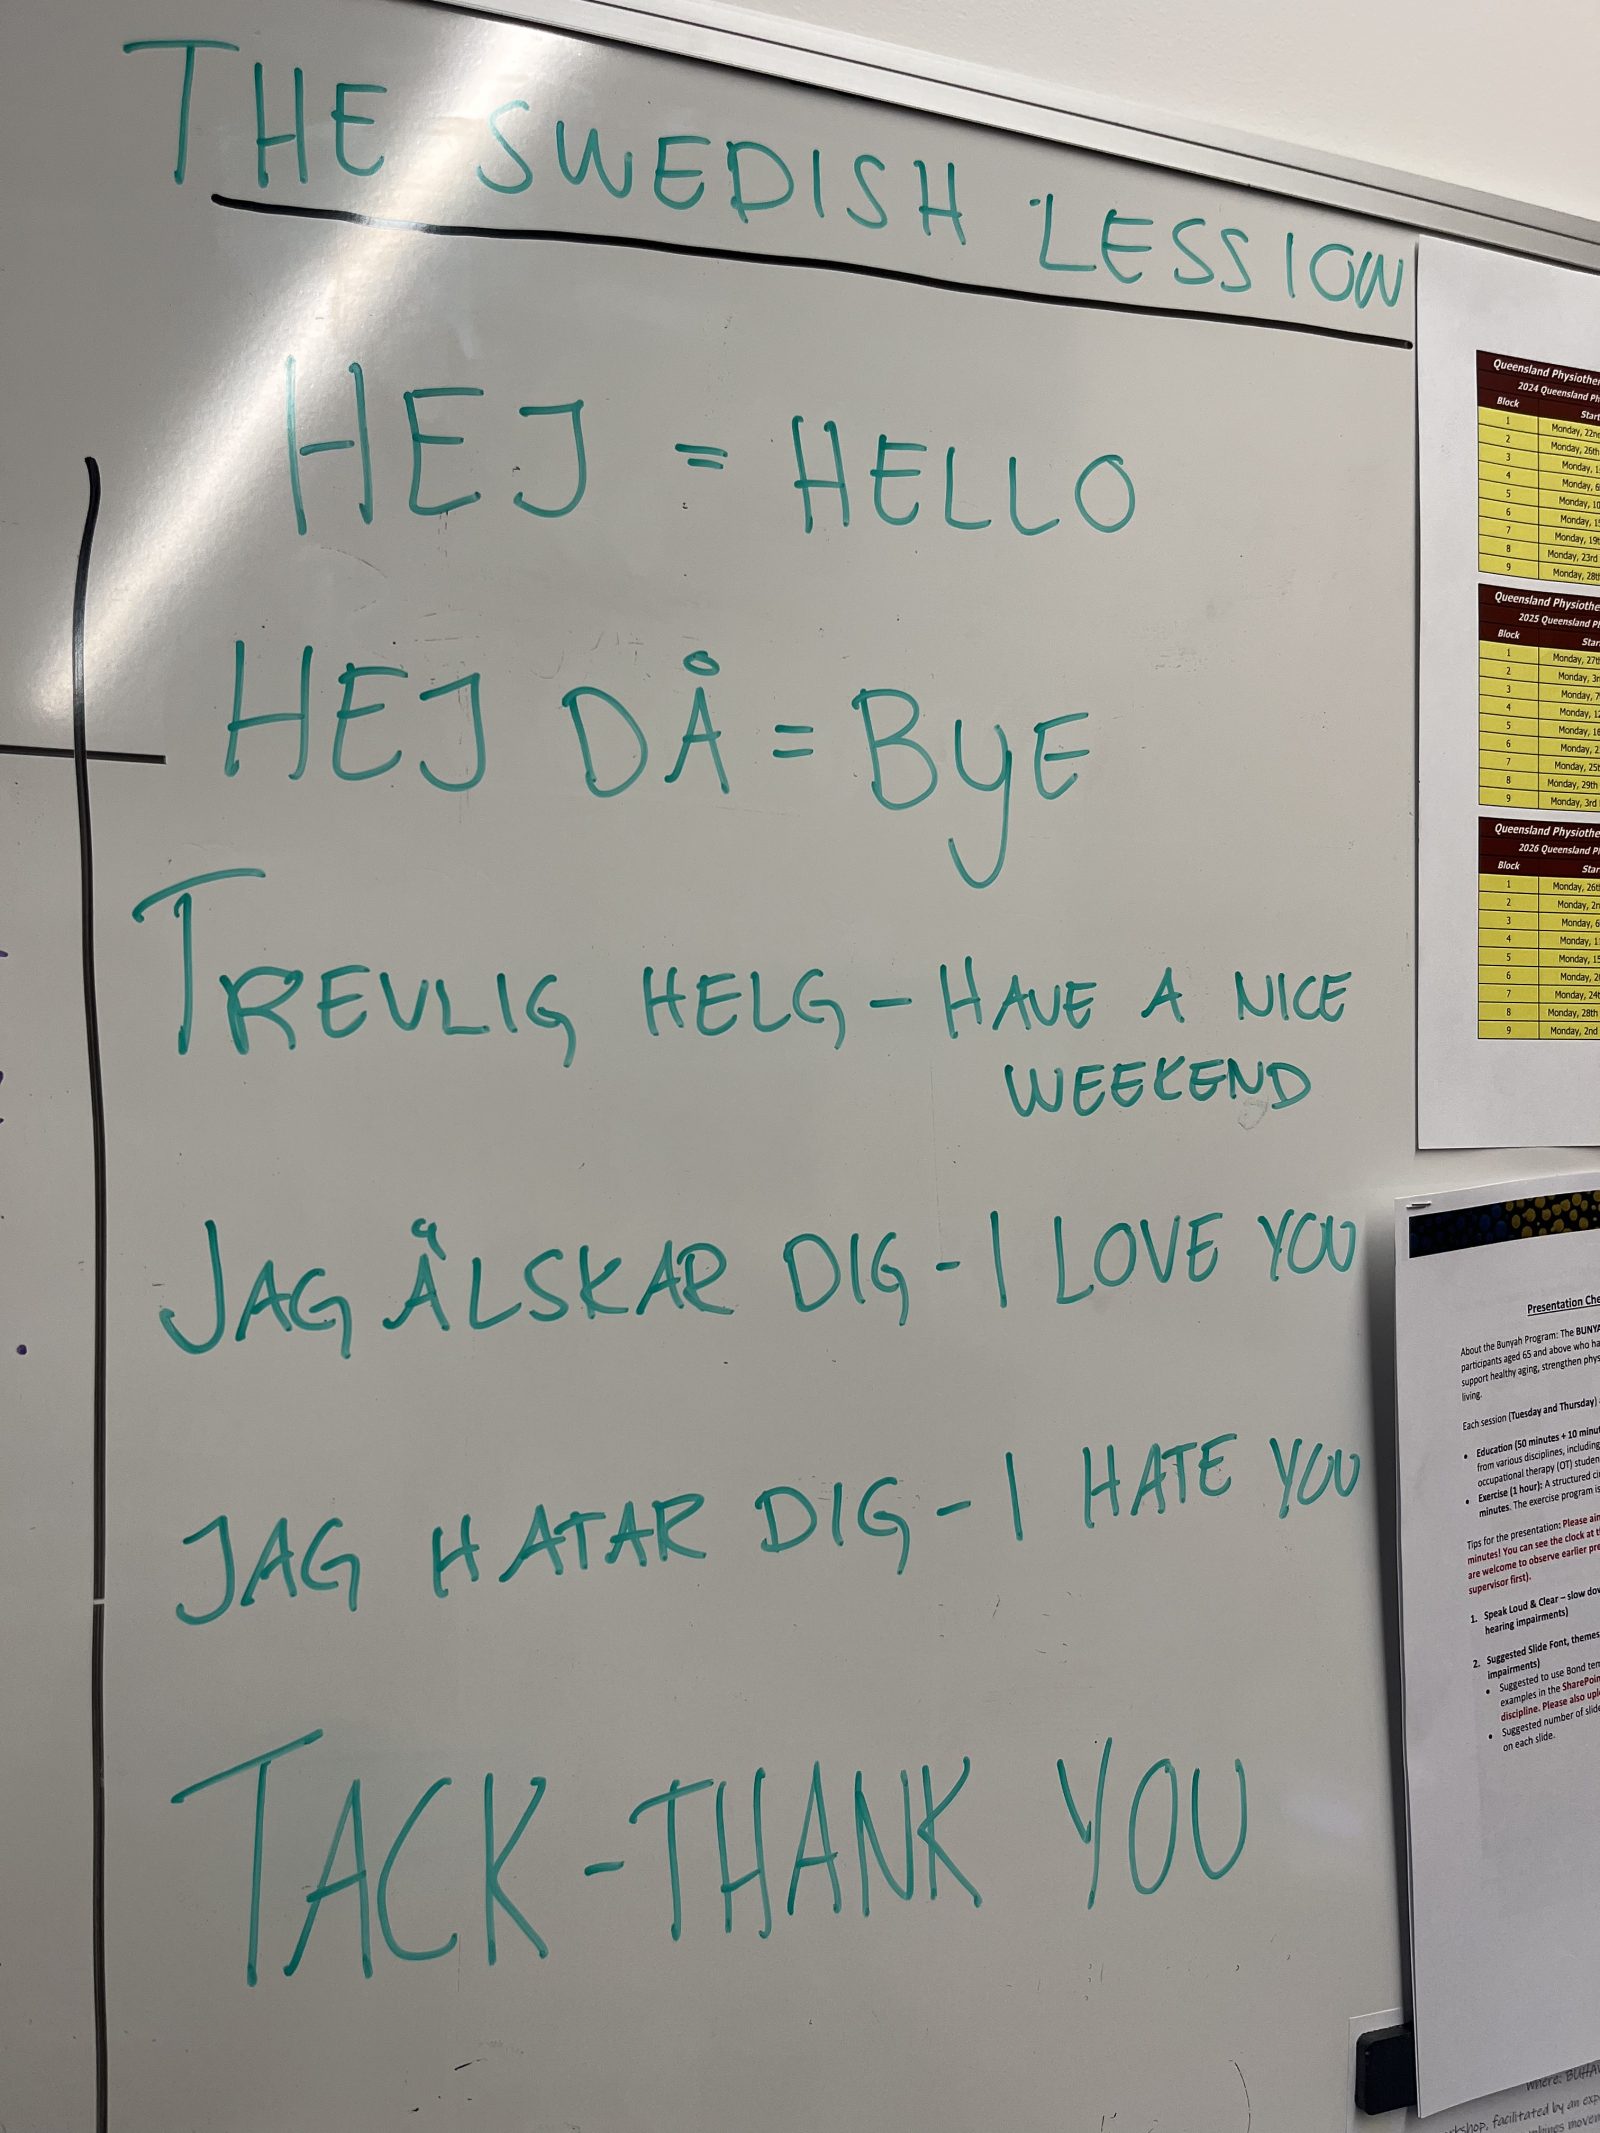 THE SWEDISH LESSION
HEJ = HELLO
HEJ DÅ = BYE
TREVLIG HELG - HAVE A NICE
WEEKEND
JAG ÅLSKAR DIG - I LOVE YOU
JAG HATAR DIG - I HATE YOU
TACK - THANK YOU
Queensland
2024 Queensland
Block
1 Monday,
2 Monday, 26th
3 Monday,
4 Monday,
5 Monday,
6 Monday,
7 Monday,
8 Monday, 23rd
9 Monday,
Queensland
2025 Queensland
Block
1 Monday,
2 Monday,
3 Monday,
4 Monday,
5 Monday,
6 Monday,
7 Monday,
8 Monday, 29th
9 Monday, 3rd
Queensland
2026 Queensland
Block
1 Monday,
2 Monday,
3 Monday,
4 Monday,
5 Monday,
6 Monday,
7 Monday,
8 Monday, 28th
9 Monday, 2nd
Presentation
About the Bunyah Program: The
participants aged 65 and above who
support healthy aging, strengthen
living.
Each session (Tuesday and Thursday)
• Education (50 minutes + 10
from various disciplines, including
occupational therapy (OT)
• Exercise (1 hour): A structured
minutes. The exercise program is
Tips for the presentation: Please
minutes! You can see the clock at
are welcome to observe earlier
supervisor first).
1. Speak Loud & Clear – slow
hearing impairments)
2. Suggested Slide Font, themes
impairments)
• Suggested to use Bond
examples in the
discipline. Please also
• Suggested number of
on each slide.
where:
facilitated by an